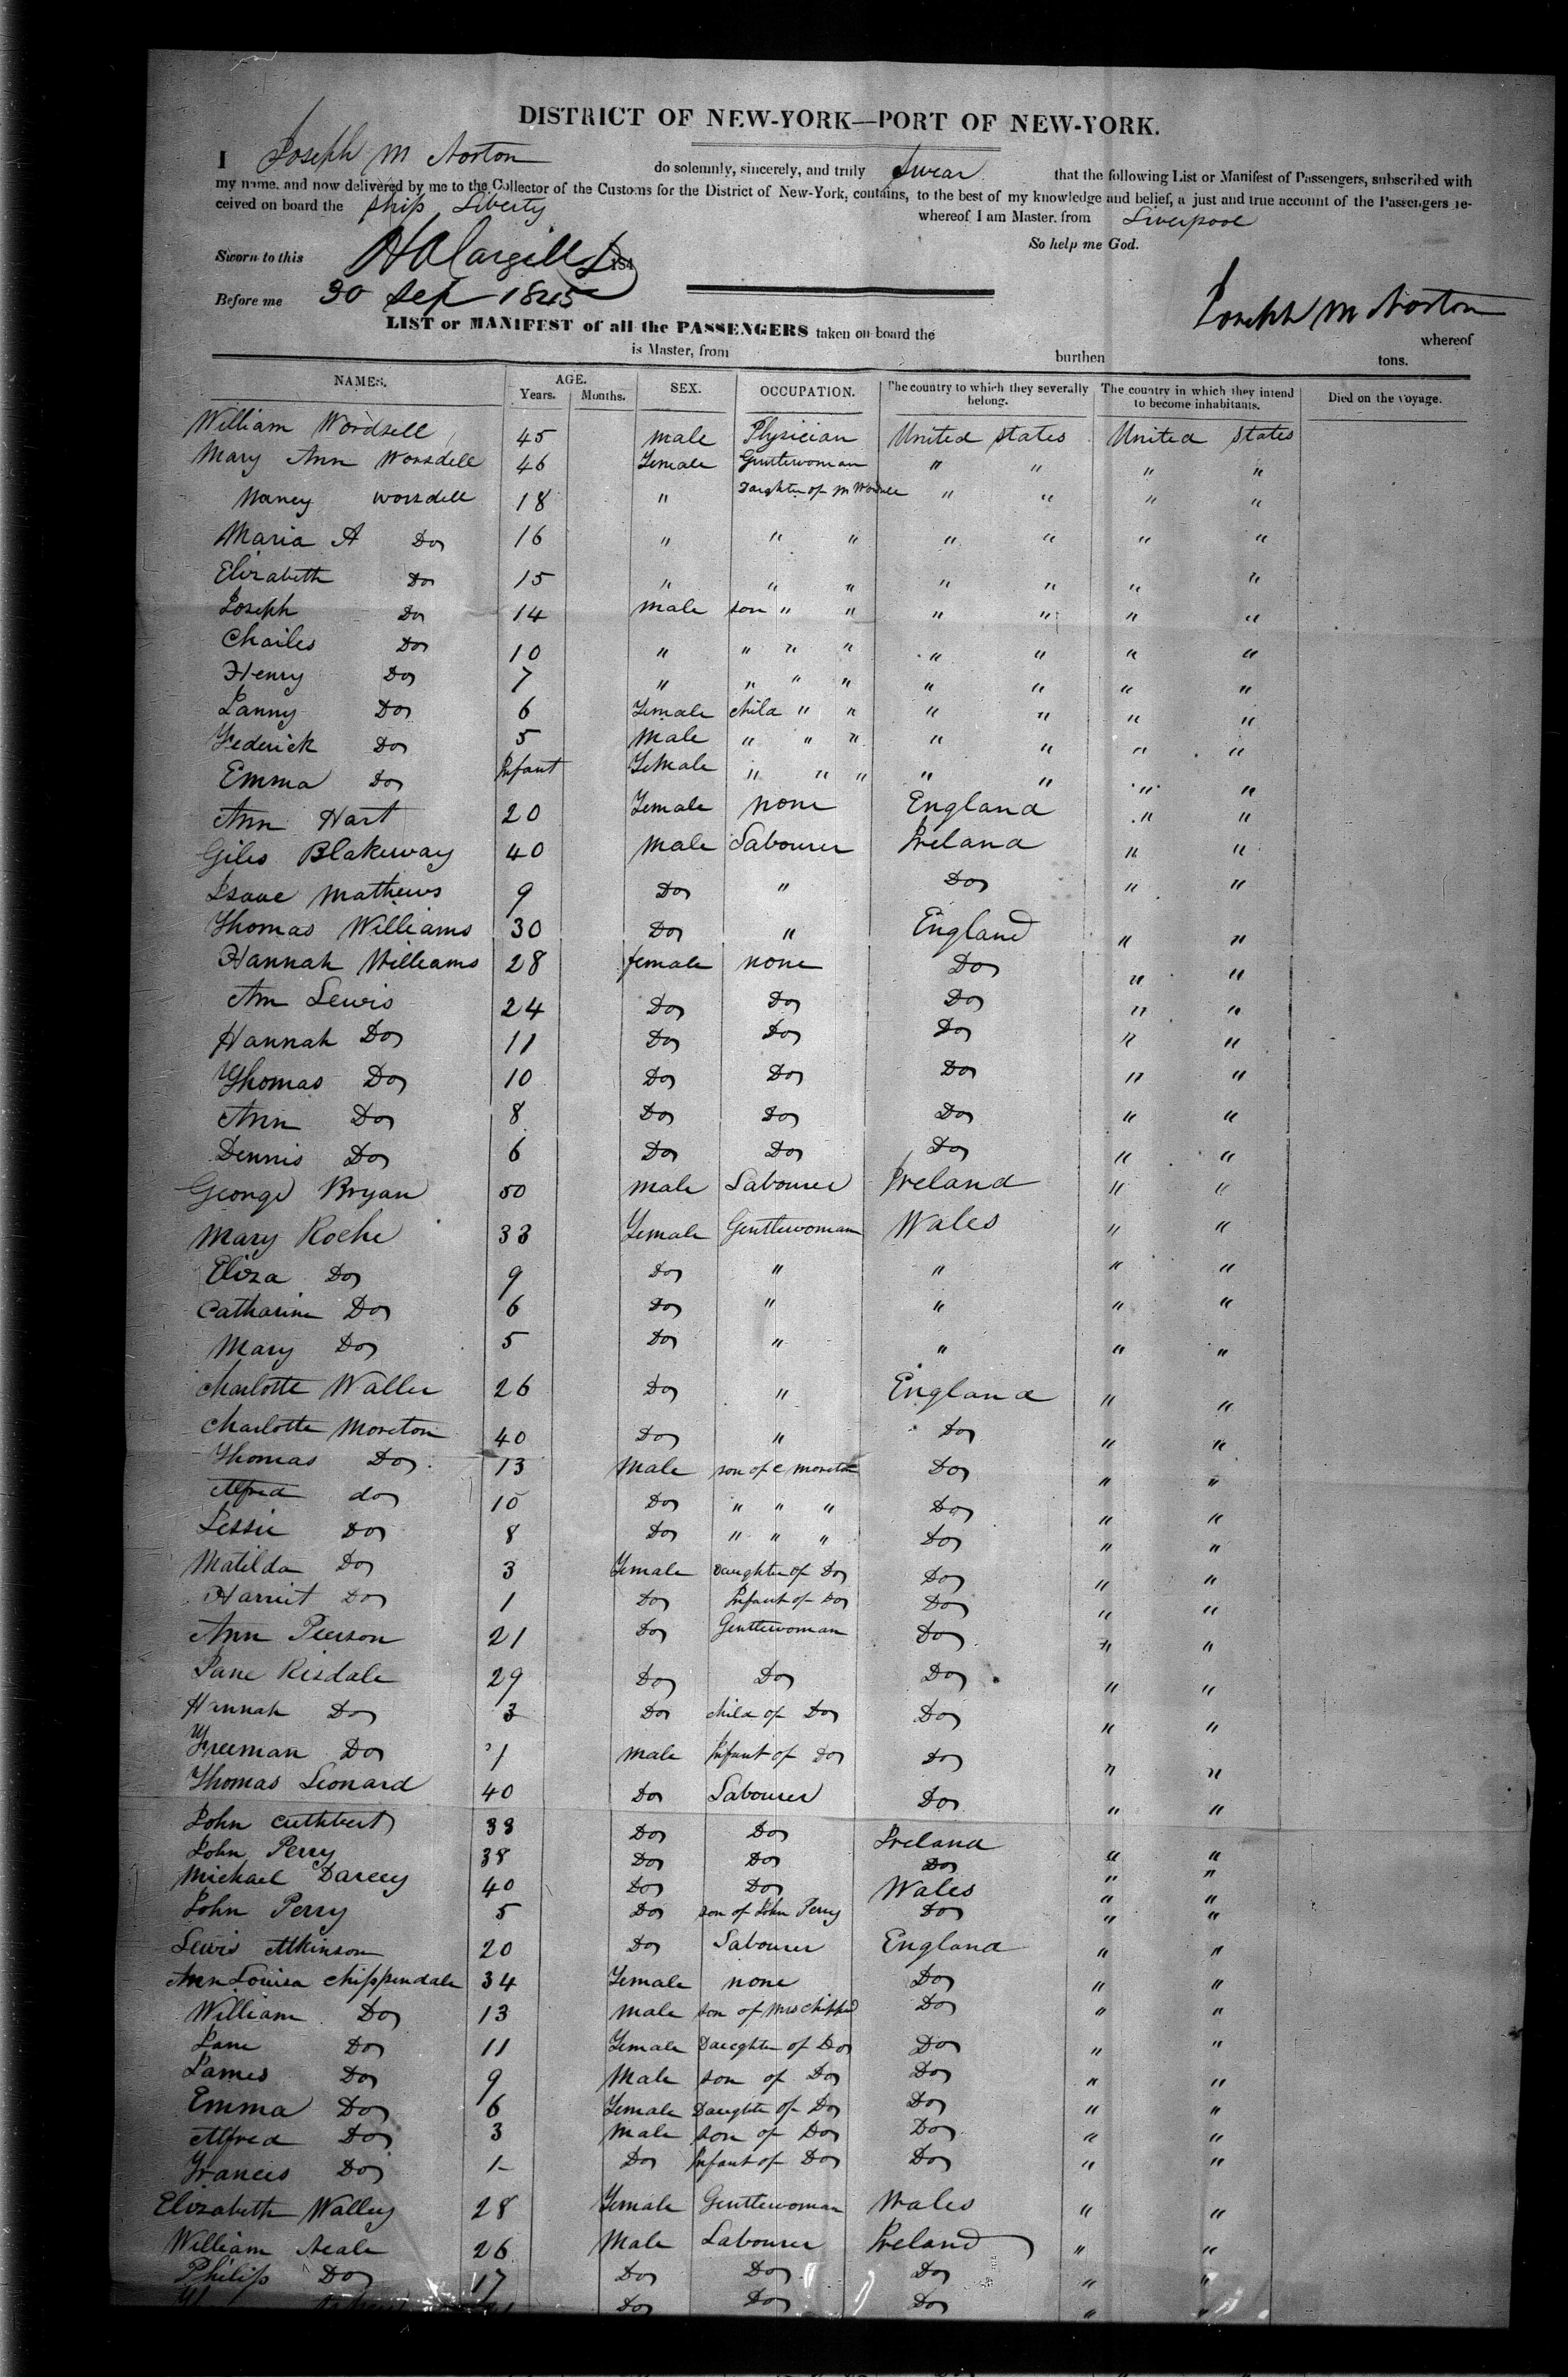 DISTRICT OF NEW-YORK—PORT OF NEW-YORK.
I Joseph M Norton do solemnly, sincerely, and truly Swear that the following List or Manifest of Passengers, subscribed with
my name, and now delivered by me to the Collector of the Customs for the District of New-York, contains, to the best of my knowledge and belief, a just and true account of the Passengers re-
ceived on board the Ship Liberty whereof I am Master, from Liverpool
So help me God.
Sworn to this 184
Before me 30 Sep 1845
Joseph M Norton
LIST or MANIFEST of all the PASSENGERS taken on board the whereof
is Master, from burthen tons.
NAMES. AGE. Years. Months. SEX. OCCUPATION. The country to which they severally belong. The country in which they intend to become inhabitants. Died on the voyage.
William Wordsell 45 male Physician United States United States
Mary Ann Worsdell 46 Female Gentlewoman " " " "
Nancy Worsdell 18 " Daughter of M Wordsell " " " "
Maria A Do 16 " " " " " " "
Elizabeth Do 15 " " " " " " "
Joseph Do 14 male son " " " " " "
Charles Do 10 " " " " " " " "
Henry Do 7 " " " " " " " "
Fanny Do 6 Female child " " " " " "
Frederick Do 5 Male " " " " " " "
Emma Do Infant Female " " " " " " "
Ann Hart 20 Female none England " "
Giles Blakeway 40 Male Labourer Ireland " "
Isaac Mathews 9 Do " Do " "
Thomas Williams 30 Do " England " "
Hannah Williams 28 female none Do " "
Ann Lewis 24 Do Do Do " "
Hannah Do 11 Do Do Do " "
Thomas Do 10 Do Do Do " "
Ann Do 8 Do Do Do " "
Dennis Do 6 Do Do Do " "
George Bryan 50 Male Labourer Ireland " "
Mary Roche 33 Female Gentlewoman Wales " "
Eliza Do 9 Do " " " "
Catharine Do 6 Do " " " "
Mary Do 5 Do " " " "
Charlotte Waller 26 Do " England " "
Charlotte Moreton 40 Do " Do " "
Thomas Do 13 Male son of C Moreton Do " "
Alfred do 10 Do " " " Do " "
Lessie Do 8 Do " " " Do " "
Matilda Do 3 Female Daughter of Do Do " "
Harriet Do 1 Do Infant of Do Do " "
Ann Peerson 21 Do Gentlewoman Do " "
Jane Risdale 29 Do Do Do " "
Hannah Do 3 Do child of Do Do " "
Freeman Do 1 Male Infant of Do Do " "
Thomas Leonard 40 Do Labourer Do " "
John Cuthbert 33 Do Do Ireland " "
John Perry 38 Do Do Do " "
Michael Darcey 40 Do Do Wales " "
John Perry 5 Do son of John Perry Do " "
Lewis Atkinson 20 Do Labourer England " "
Ann Louisa Chippendale 34 Female none Do " "
William Do 13 Male son of Mrs Chippd Do " "
Jane Do 11 Female Daughter of Do Do " "
James Do 9 Male son of Do Do " "
Emma Do 6 Female Daughte of Do Do " "
Alfred Do 3 Male son of Do Do " "
Francis Do 1 Do Infant of Do Do " "
Elizabeth Walley 28 Female Gentlewoman Wales " "
William Neale 26 Male Labourer Ireland " "
Philip Do 17 Do Do Do " "
Do Do Do " "